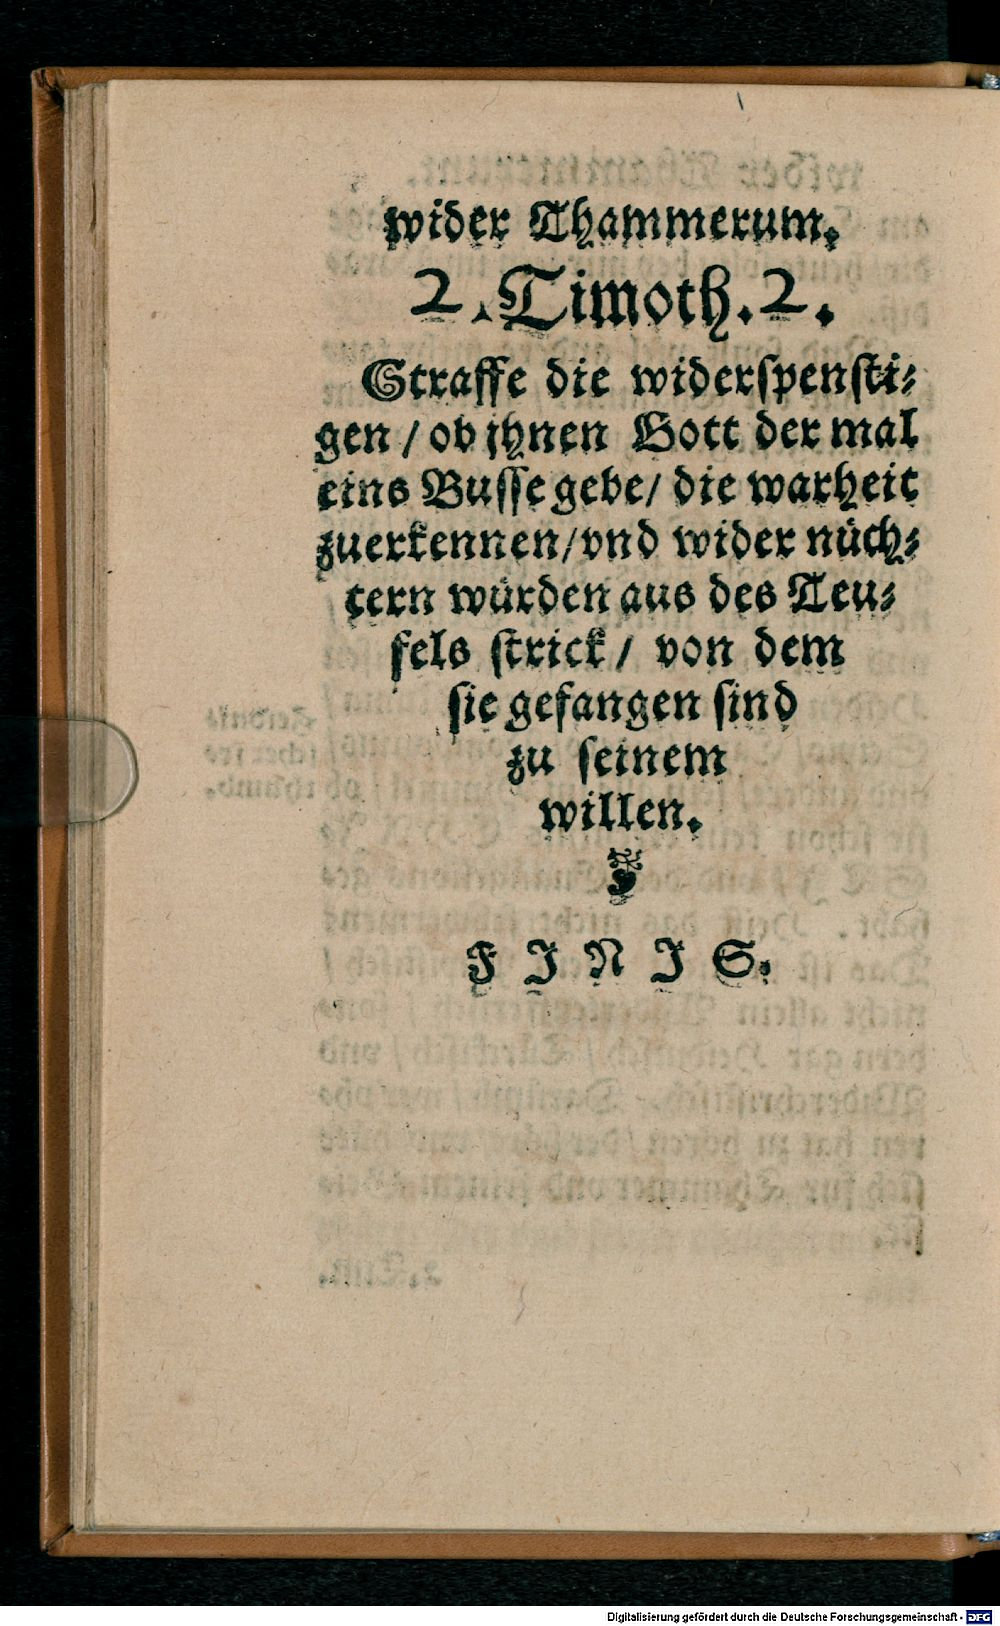 wider Thammerum.
2. Timoth. 2.
Straffe die widerspensti⸗
gen / ob jhnen Gott der mal
eins Busse gebe / die warheit
zuerkennen / vnd wider nüch⸗
tern würden aus des Teu⸗
fels strick / von dem
sie gefangen sind
zu seinem
willen.
F I N I S.
Digitalisierung gefördert durch die Deutsche Forschungsgemeinschaft - DFG